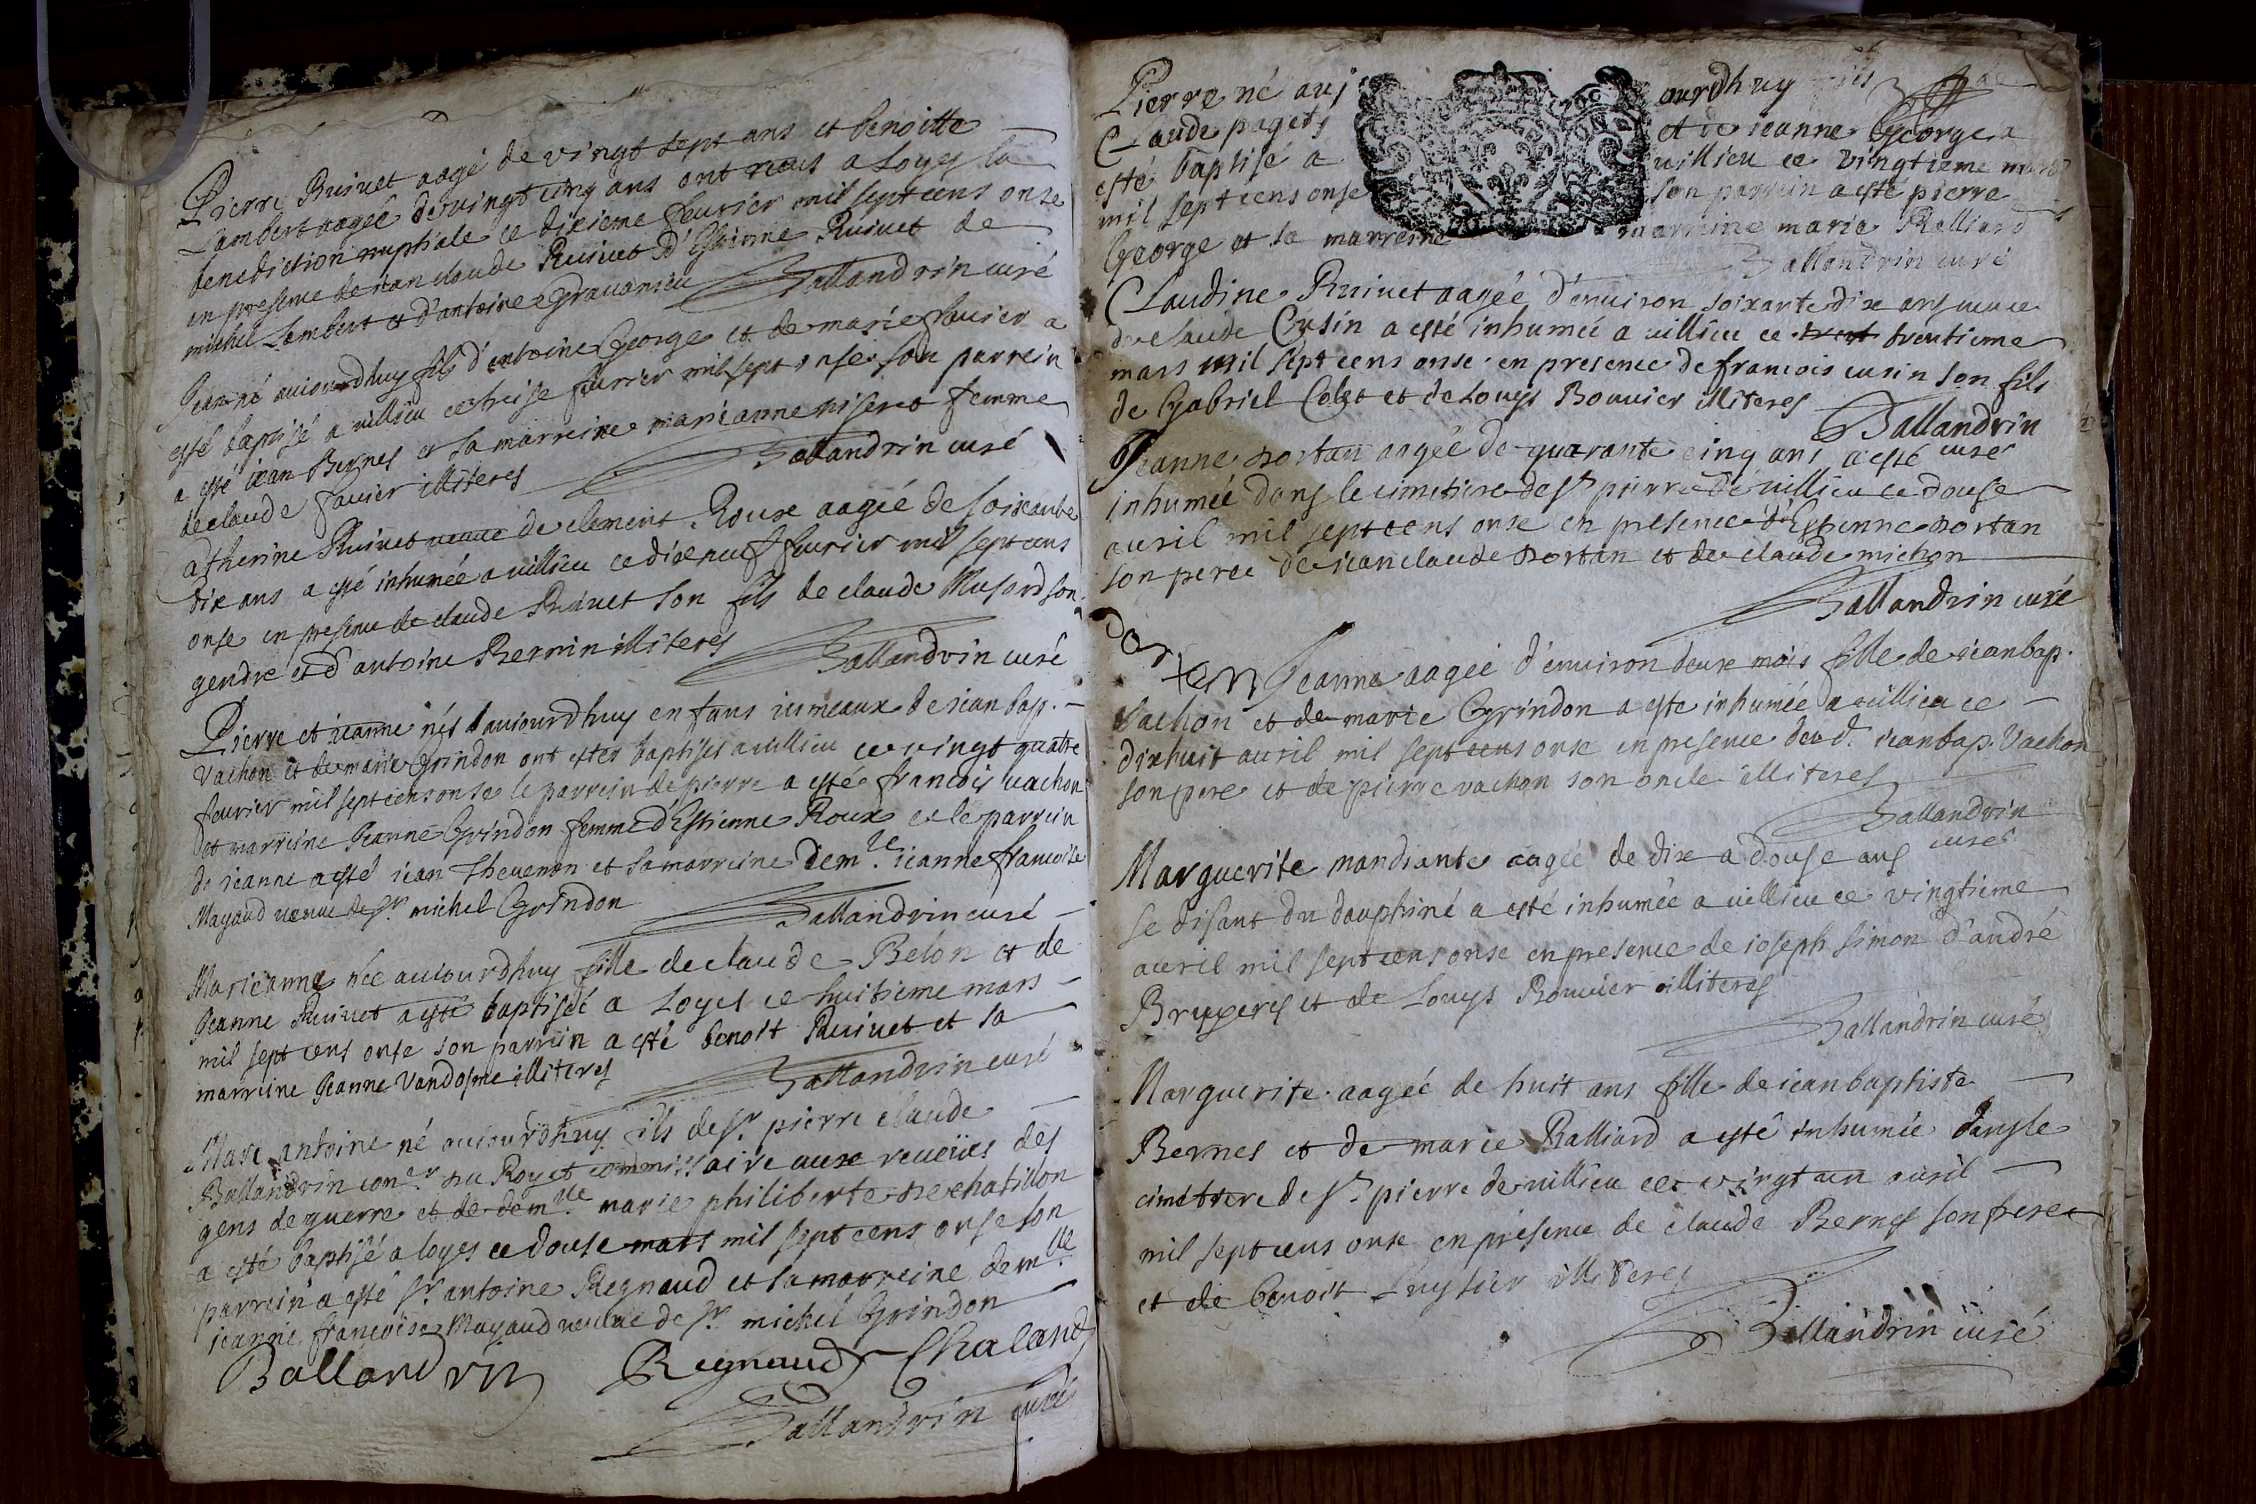 Pierre Ruivet aagé de vingt sept ans et benoitte
Lambert aageé de vingt cinq ans ont receus a Loyes la
benediction nuptiale ce dixieme feurier mil sept cens onse
en presence de jean claude Ruivet d'Estienne Ruivet de
michel Lambert et d'antoine Gravanieu Ballandrin curé
Jean né auiourdhuy fils d'antoine George et de marie fauier a
esté baptisé a uillieu ce treise feurier mil sept onse son parrein
a esté iean Bernes et sa marreine marieanne niseret femme
de claude fauier illiteres Ballandrin curé
atherine Ruivet veuue de clement Roux aageé de soixante
dix ans a esté inhumée a uillieu ce dixneuf feurier mil sept cens
onse en presence de claude Ruivet son fils de claude Musard son
gendre et d'antoine Bernin illiteres Ballandrin curé
Pierre et ieanne nés auiourdhuy enfans iumeaux de iean bap.
Vachon et de marie Grindon ont estes baptisés a uillieu ce vingt quatre
feurier mil sept cens onse le parrein de pierre a esté francois vachon
et marreine Jeanne Grindon femme d'Estienne Roux et le parrein
de ieanne a esté iean Thevenon et sa marreine dem.lle ieanne francoise
Mayaud veuue de Sr. michel Grindon Ballandrin curé
Marieanne née auiourdhuy fille de claude Belon et de
Jeanne Ruivet a esté baptisée a Loyes ce huitieme mars
mil sept cens onse son parrein a esté benoit Ruivet et sa
marreine Jeanne Vandosme illiteres Ballandrin curé
Marc antoine né auiourdhuy fils de Sr. pierre claude
Ballandrin con.er du Roy et commissaire aux reueües des
gens de guerre et de dem.lle marie philiberte de chatillon
a esté baptisé a loyes ce douse mars mil sept cens onse son
parrein a esté Sr. antoine Regnaud et sa marreine dem.lle
ieanne francoise Mayaud veuue de Sr. michel Grindon
Ballandrin Regnaud Chaland
Ballandrin curé
Pierre né auj ourdhuy fils
Claude pagets et de ieanne George a
esté baptisé a uillieu ce vingtieme mars
mil sept cens onse son parrein a esté pierre
George et sa marreine marreine marie Ralliard
Ballandrin curé
Claudine Ruivet aageé d'enuiron soixante dix ans veuue
de claude Cusin a esté inhumée a uillieu ce trent trentieme
mars mil sept cens onse en presence de francois cusin son fils
de Gabriel Colet et de Louys Bouuier illiteres Ballandrin
curé
Jeanne dortan aageé de quarante cinq ans a esté
inhumée dans le cimetiere de St. pierre de uillieu ce douse
auril mil sept cens onse en presence d'Estienne dortan
son pere de iean claude dortan et de claude michon
Ballandrin curé
Jeanne aageé d'enuiron deux mois fille de ieanbap.
Vachon et de marie Grindon a esté inhumée a uillieu ce
dixhuit auril mil sept cens onse en presence dud. ieanbap. Vachon
son pere et de pierre vachon son oncle illiteres
Ballandrin
curé
Marguerite mandiante aageé de dix a douse ans
se disant du dauphiné a esté inhumée a uillieu ce vingtieme
auril mil sept cens onse en presence de ioseph simon d'andré
Bruyeres et de Louys Bouuier illiteres
Ballandrin curé
Marguerite aageé de huit ans fille de iean baptiste
Bernes et de marie Ralliard a esté inhumée dans le
cimetiere de St. pierre de uillieu ce vingt un auril
mil sept cens onse en presence de claude Bernes son frere
et de benoit illiteres
Ballandrin curé